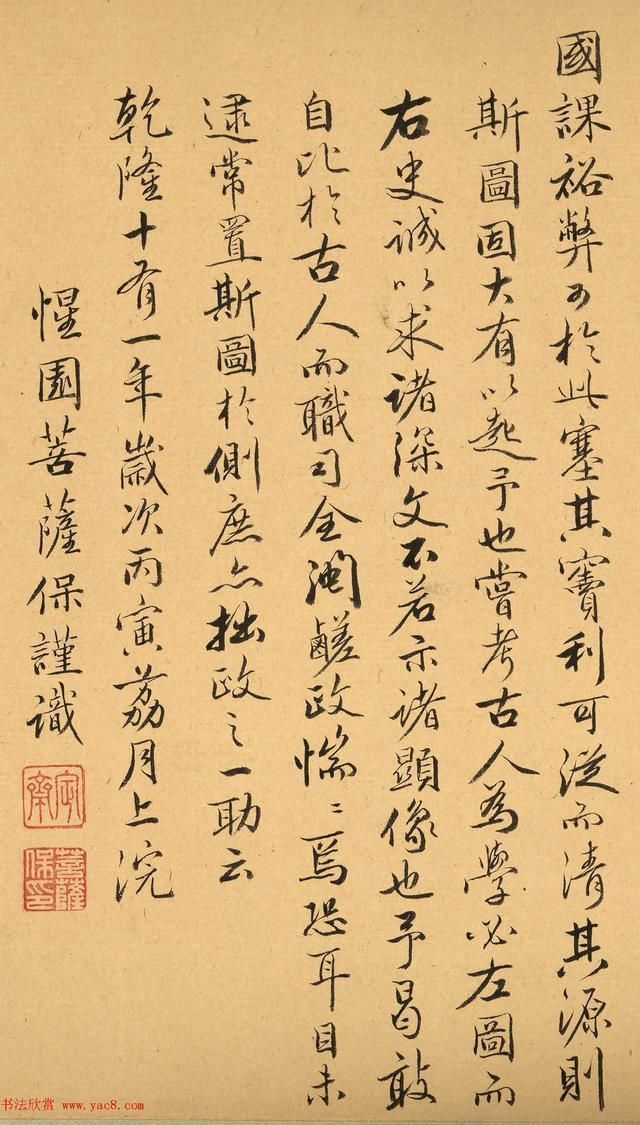 國課裕弊可於此塞其竇利可從而清其源則
斯圖固大有以起予也嘗考古人為學必左圖而
右史誠以求諸深文不若示諸顯像也予曷敢
自比於古人而職司全閩鹺政惴〻焉恐耳目未
逮常置斯圖於側庶亦拙政之一助云
乾隆十有一年歲次丙寅荔月上浣
惺園菩薩保謹識
菩薩保印
书法欣赏 www.yac8.com